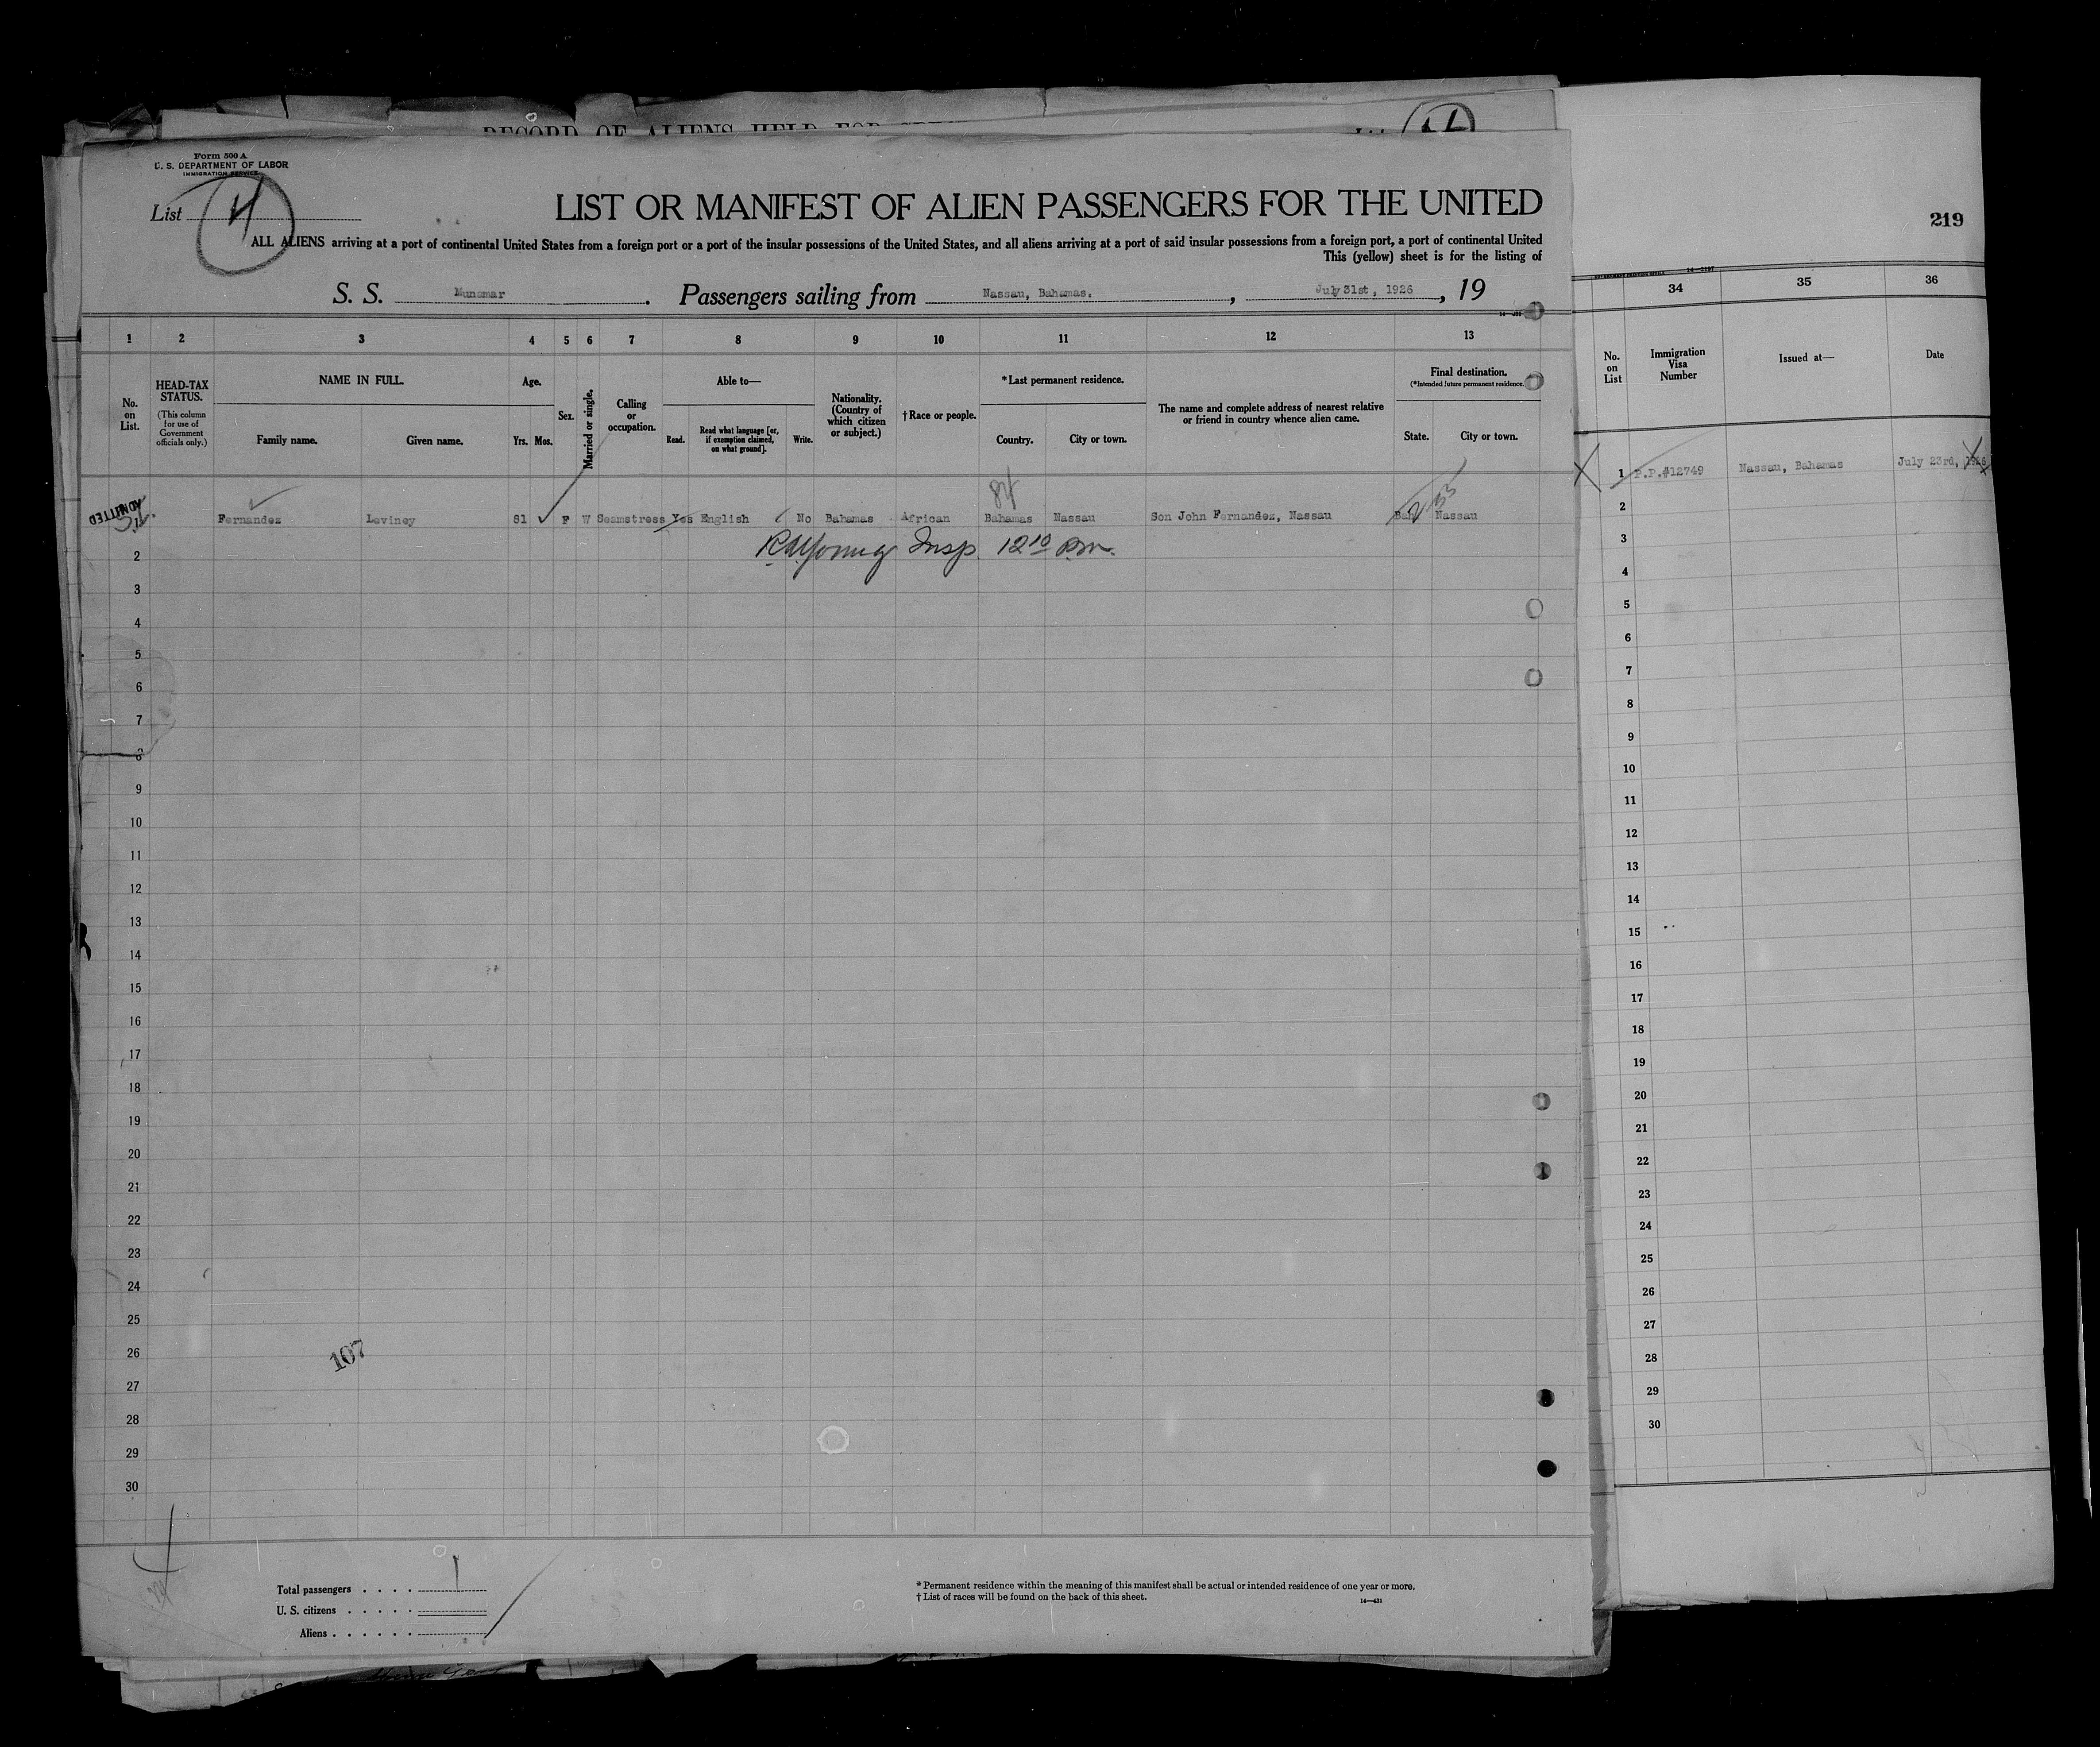 RECORD OF ALIENS HELD FOR
Form 500 A
U. S. DEPARTMENT OF LABOR
IMMIGRATION SERVICE
List 4
LIST OR MANIFEST OF ALIEN PASSENGERS FOR THE UNITED
ALL ALIENS arriving at a port of continental United States from a foreign port or a port of the insular possessions of the United States, and all aliens arriving at a port of said insular possessions from a foreign port, a port of continental United
This (yellow) sheet is for the listing of
S. S. Munamar. Passengers sailing from Nassau, Bahamas., July 31st, 1926, 19
219
1 2 3 4 5 6 7 8 9 10 11 12 13
34 35 36
No. on List.
HEAD-TAX STATUS.
(This column for use of Government officials only.)
NAME IN FULL.
Family name. Given name.
Age.
Yrs. Mos.
Sex.
Married or single.
Calling or occupation.
Able to—
Read. Read what language [or, if exemption claimed, on what ground]. Write.
Nationality. (Country of which citizen or subject.)
†Race or people.
*Last permanent residence.
Country. City or town.
The name and complete address of nearest relative or friend in country whence alien came.
Final destination.
(*Intended future permanent residence.)
State. City or town.
No. on List
Immigration Visa Number
Issued at—
Date
ADMITTED
Fernandez Leviney 81 F W Seamstress Yes English No Bahamas African Bahamas Nassau Son John Fernandez, Nassau Bah Nassau
1 P.P.#12749 Nassau, Bahamas July 23rd, 1926
Insp. 12 10 pm.
2
3
4
5
6
7
8
9
10
11
12
13
14
15
16
17
18
19
20
21
22
23
24
25
26
27
28
29
30
2
3
4
5
6
7
8
9
10
11
12
13
14
15
16
17
18
19
20
21
22
23
24
25
26
27
28
29
30
107
Total passengers . . . . 1
U. S. citizens . . . . .
Aliens . . . . . .
* Permanent residence within the meaning of this manifest shall be actual or intended residence of one year or more.
† List of races will be found on the back of this sheet.
14—431